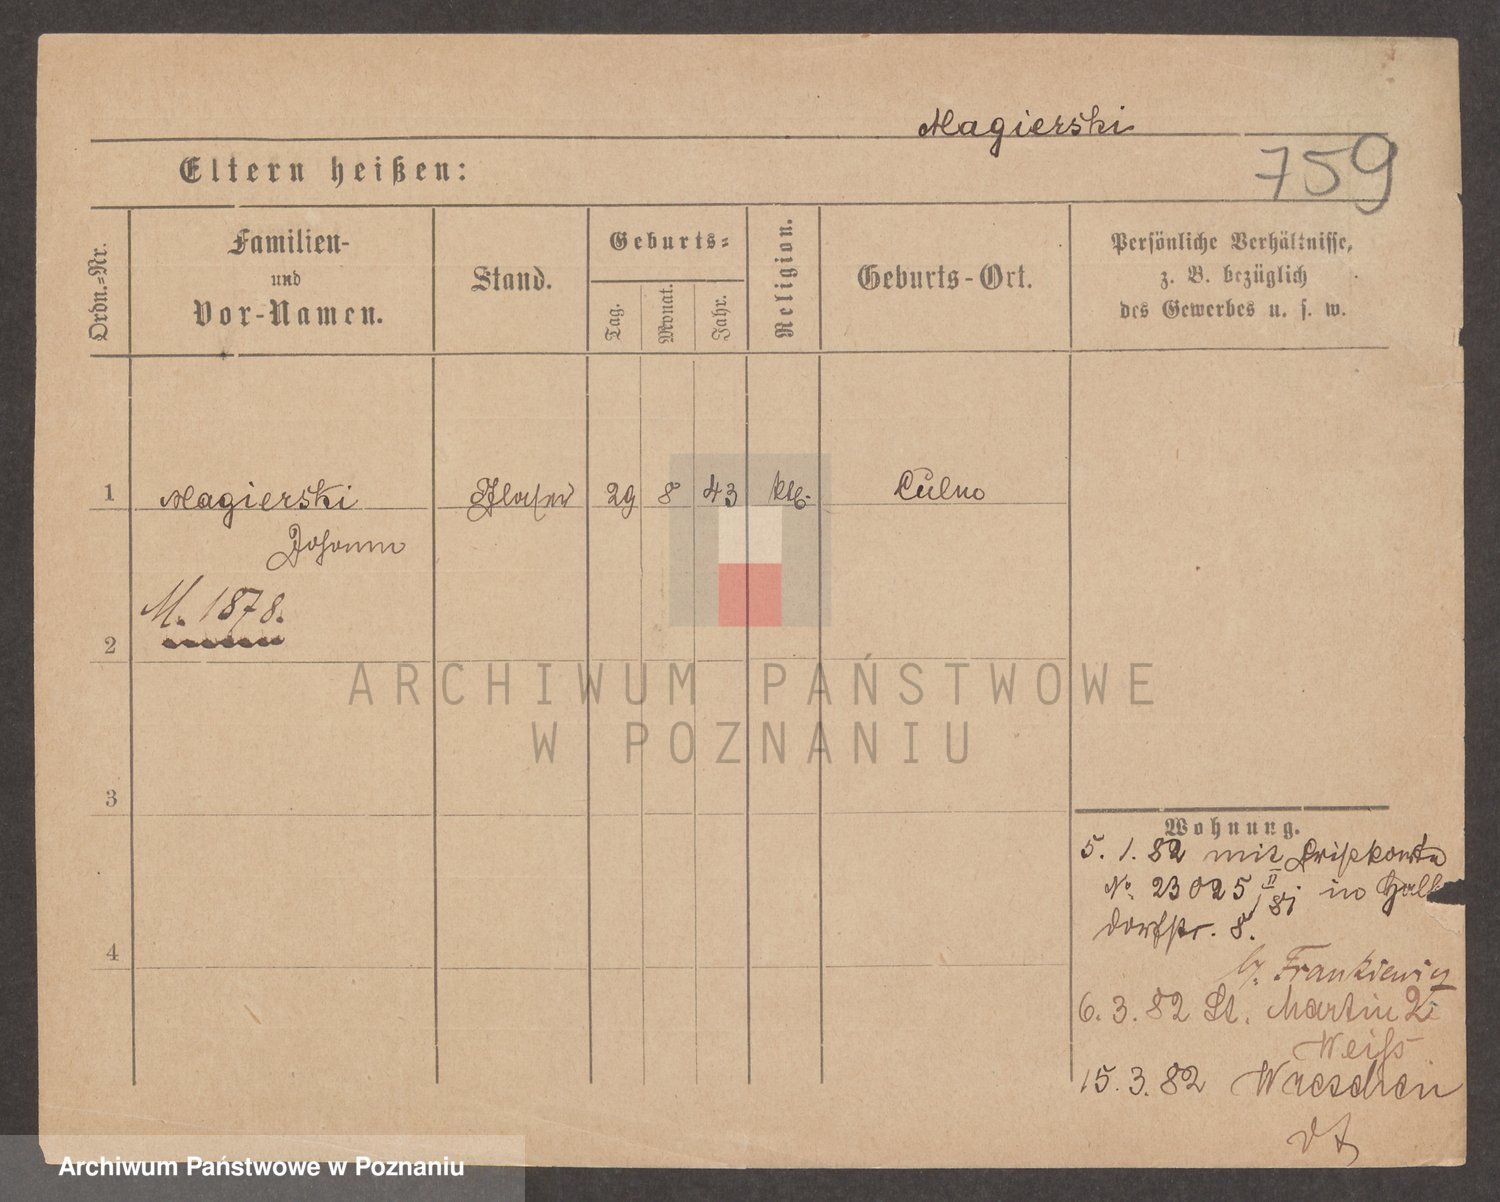 Magierski
759
Eltern heißen:
Ordn.-Nr.
Familien-
und
Vor-Namen.
Stand.
Geburts-
Tag.
Monat.
Jahr.
Religion.
Geburts-Ort.
Persönliche Verhältnisse,
z. B. bezüglich
des Gewerbes u. s. w.
1 Magierski 29 8 43 kth. Culno
Johann
M. 1878.
2
3
4
Wohnung.
5. 1. 82 mit
No. 23025 II/81 in Halb
dorfstr. 8.
b/. Frankiewicz
6. 3. 82 St. Martin
Weiß
15. 3. 82 Wreschen
ARCHIWUM PAŃSTWOWE
W POZNANIU
Archiwum Państwowe w Poznaniu